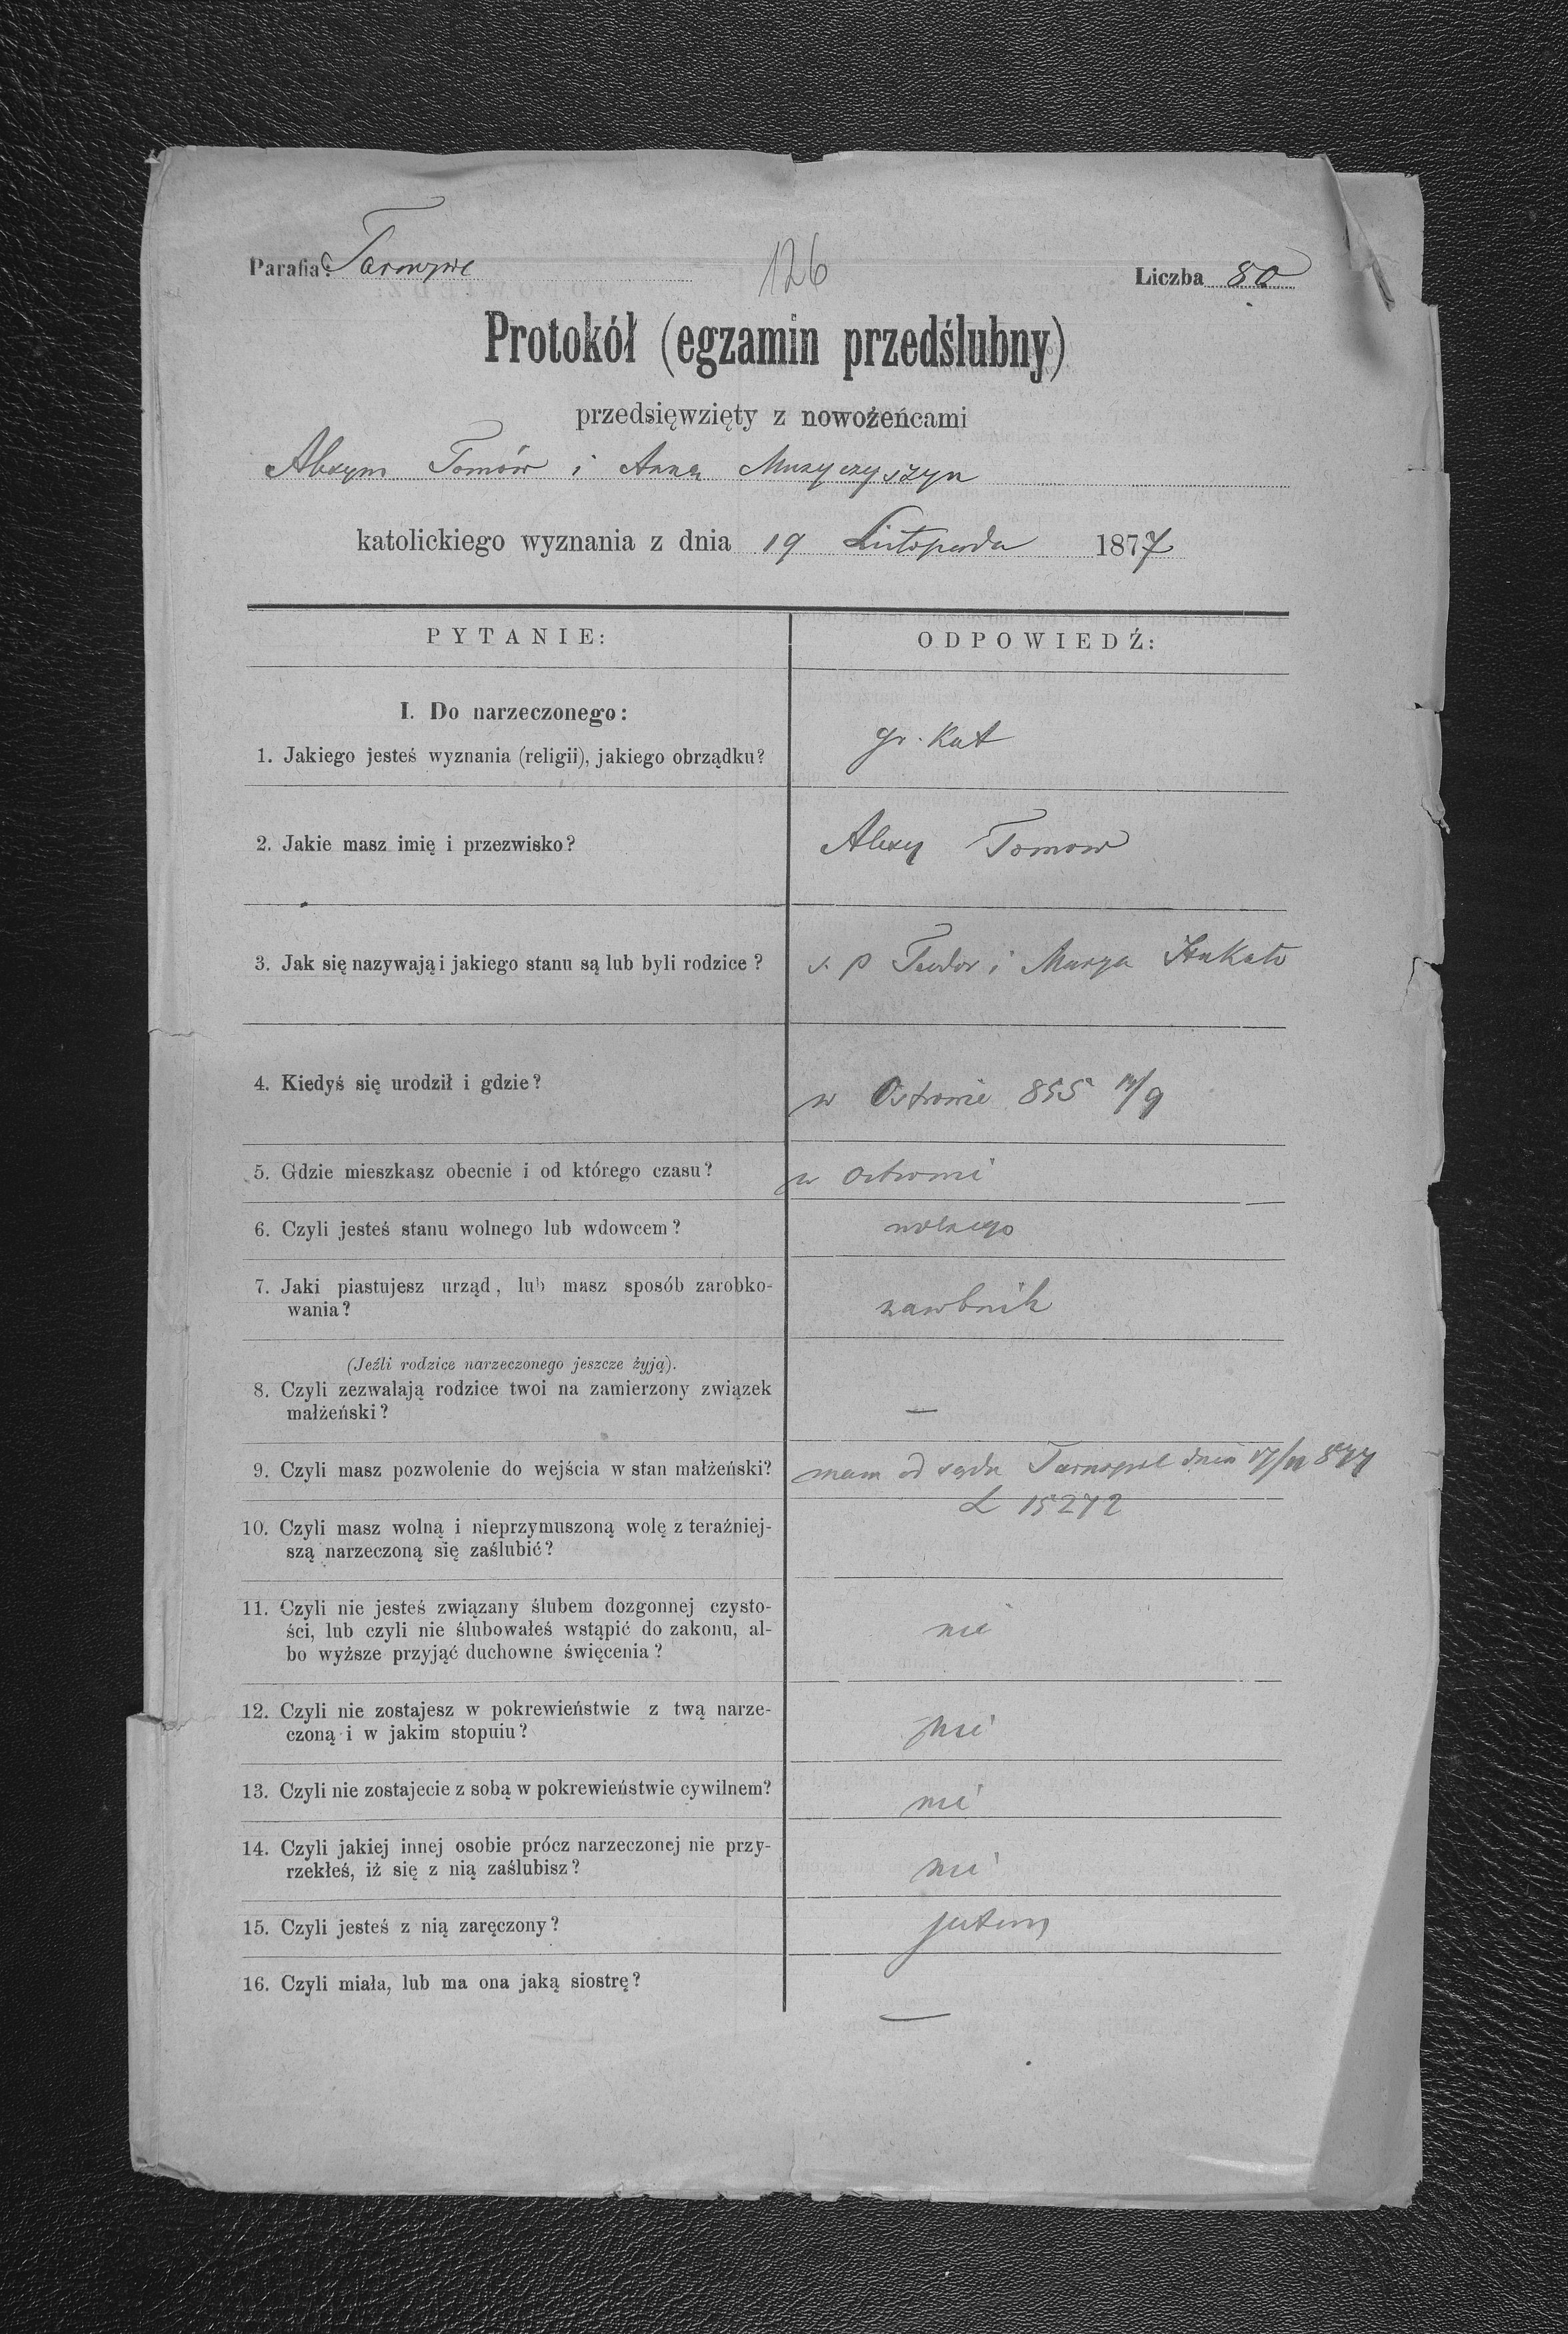 Parafia: Tarnopol
126
Liczba 80
Protokół (egzamin przedślubny)
przedsięwzięty z nowożeńcami
Alexym Tomów i Anną Muzyczyszyn
katolickiego wyznania z dnia 19 Listopada 1877
PYTANIE:
ODPOWIEDŹ:
I. Do narzeczonego:
1. Jakiego jesteś wyznania (religii), jakiego obrządku?
gr. Kat
2. Jakie masz imię i przezwisko?
Alexy Tomow
3. Jak się nazywają i jakiego stanu są lub byli rodzice?
ś. p Teodor i Marya
4. Kiedyś się urodził i gdzie?
w Ostrowie 855
5. Gdzie mieszkasz obecnie i od którego czasu?
w Ostrowie
6. Czyli jesteś stanu wolnego lub wdowcem?
wolnego
7. Jaki piastujesz urząd, lub masz sposób zarobko-
wania?
zarobnik
(Jeźli rodzice narzeczonego jeszcze żyją).
8. Czyli zezwalają rodzice twoi na zamierzony związek
małżeński?
—
9. Czyli masz pozwolenie do wejścia w stan małżeński?
mam od sądu Tarnopol dnia 17/11 877
L 15272
10. Czyli masz wolną i nieprzymuszoną wolę z teraźniej-
szą narzeczoną się zaślubić?
11. Czyli nie jesteś związany ślubem dozgonnej czysto-
ści, lub czyli nie ślubowałeś wstąpić do zakonu, al-
bo wyższe przyjąć duchowne święcenia?
nie
12. Czyli nie zostajesz w pokrewieństwie z twą narze-
czoną i w jakim stopniu?
nie
13. Czyli nie zostajecie z sobą w pokrewieństwie cywilnem?
nie
14. Czyli jakiej innej osobie prócz narzeczonej nie przy-
rzekłeś, iż się z nią zaślubisz?
nie
15. Czyli jesteś z nią zaręczony?
jestem
16. Czyli miała, lub ma ona jaką siostrę?
—